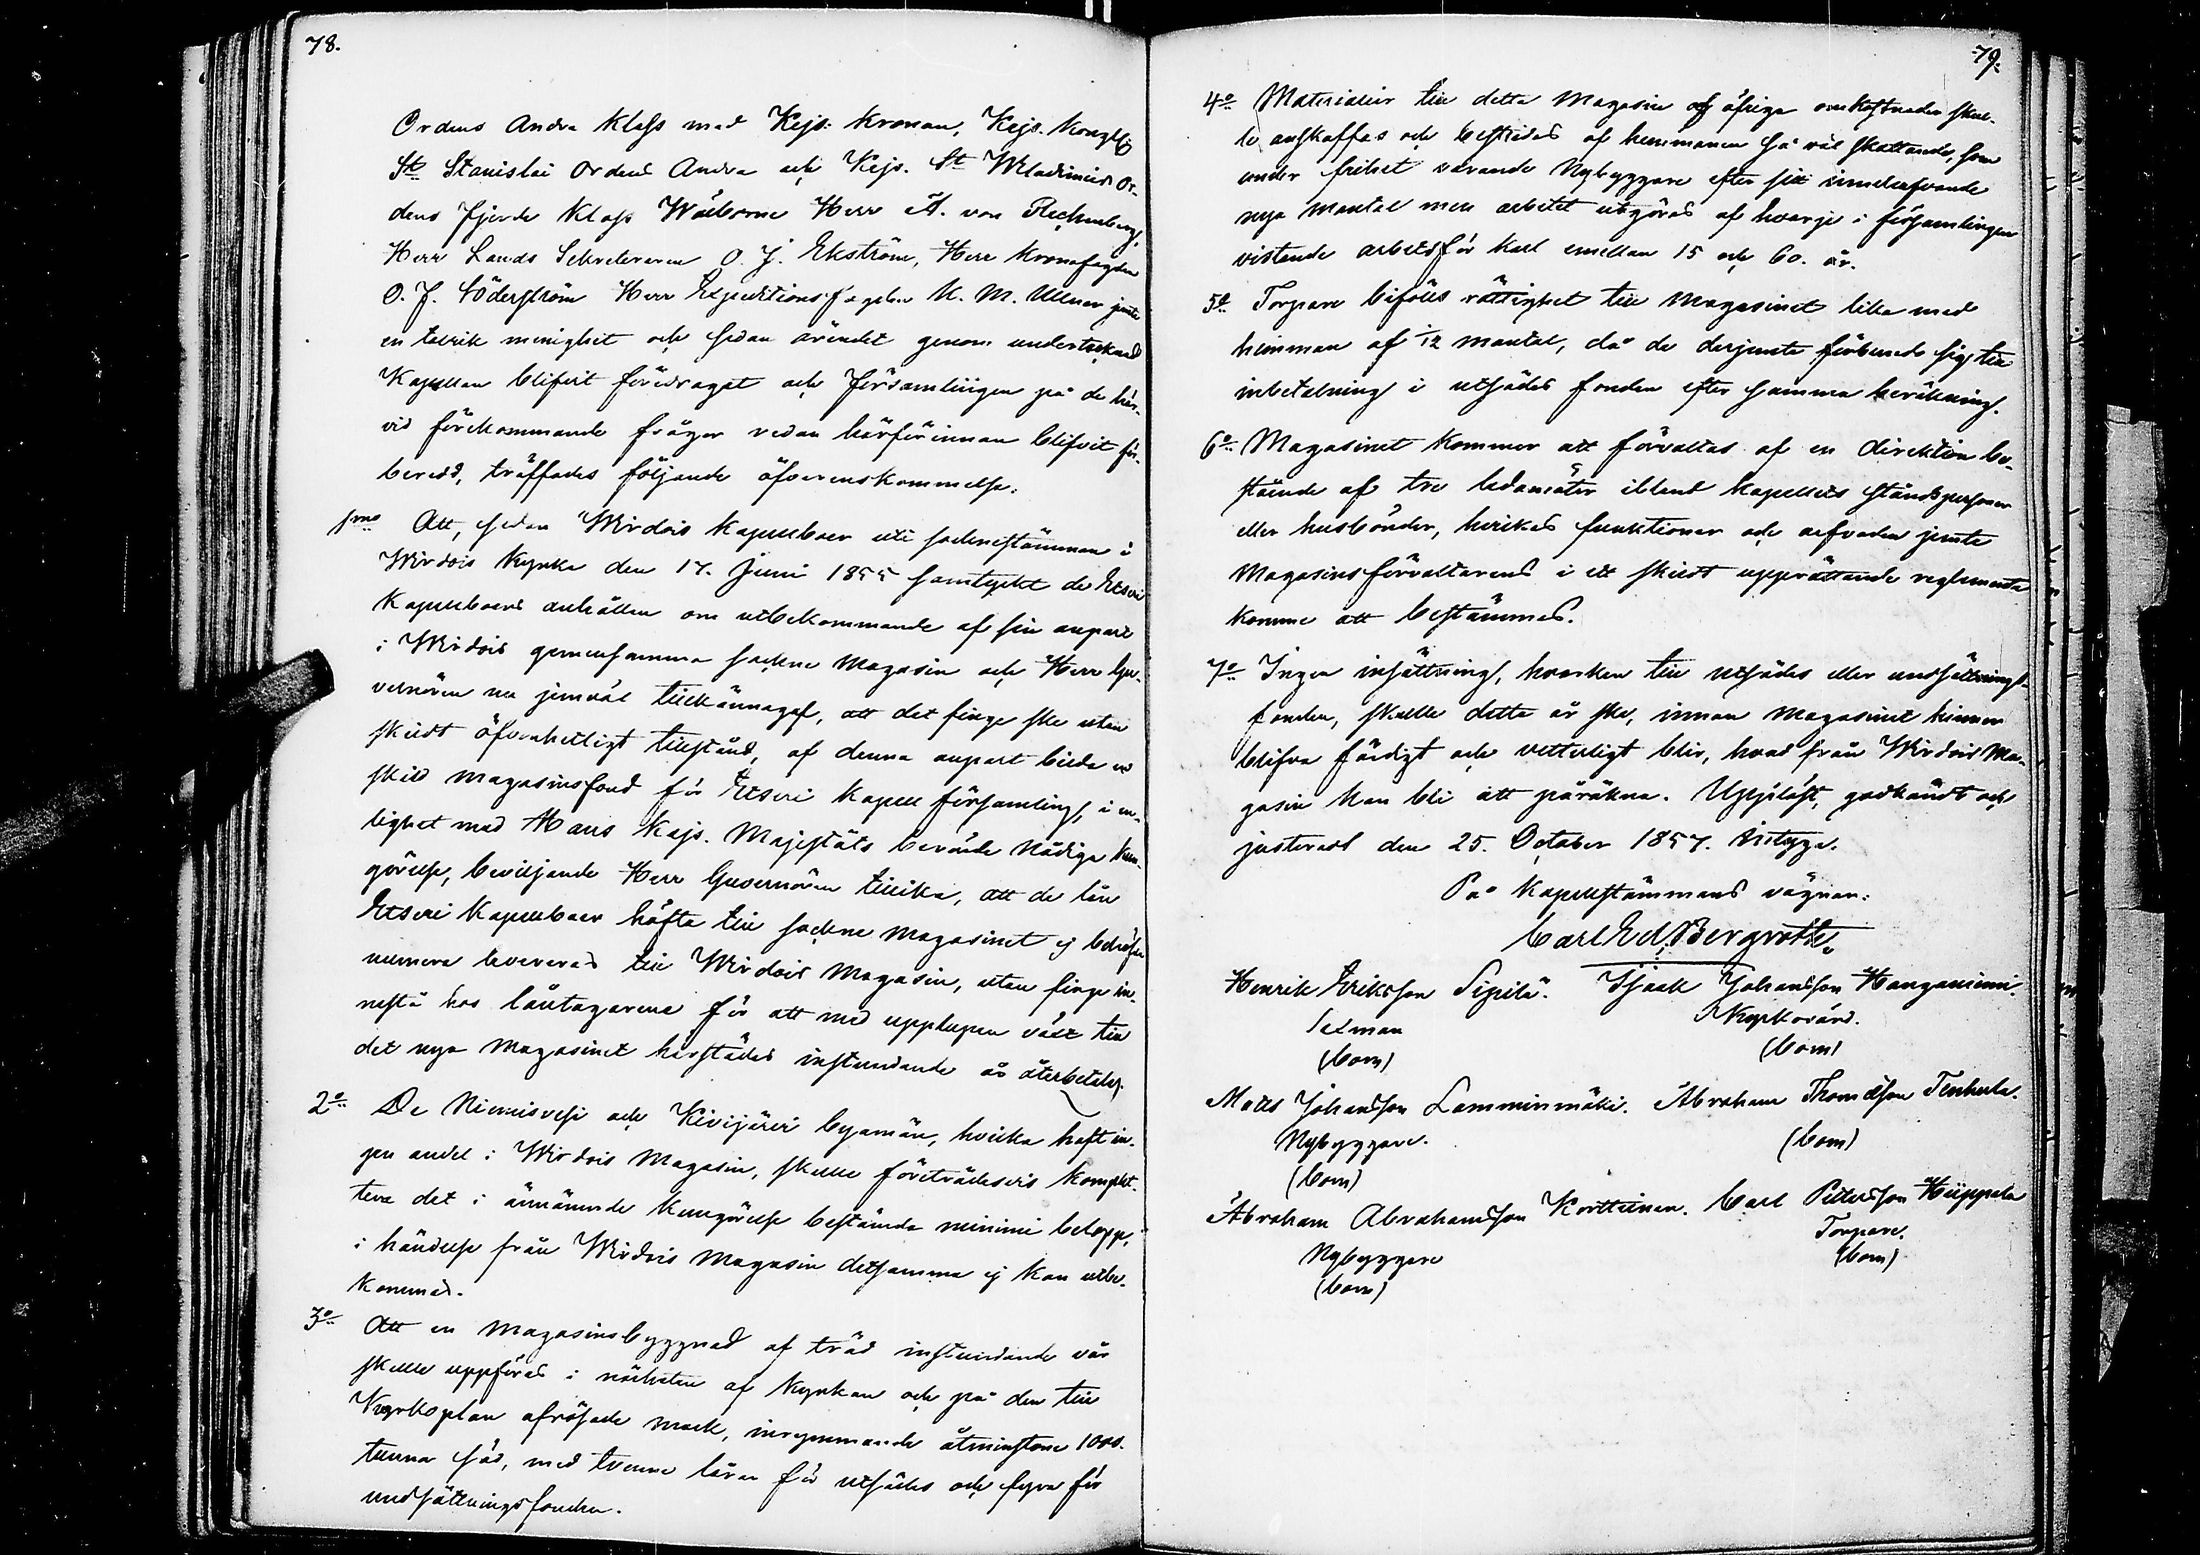 78.
Ordens Andra Klass med Kejs: Kronan, Kejs. Kongl.
St Stanislai Ordens Andra och Kejs. St Wladimirs Or-
dens fjerde Klass Wälborne Herr A. von Rechenberg,
Herr Lands Sekreteraren O. J. Ekström, Herr Kronofogden
O. J. Söderström Herr Expeditionsfogden K. M. Ullner jemte
en talrik menighet och sedan ärendet genom undertecknad
Kapellan blifvit föredraget och församlingen på de här-
vid förekommande frågor redan härförinnan blifvit för-
beredd, träffades följande öfverenskommelse:
1mo Att, sedan Wirdois Kapellboer uti sockenstämman i
Wirdois Kyrka den 17. Juni 1855 samtyckt de Etseri
Kapellboers anhållan om utbekommande af sin anpart
i Wirdois gemensamma sockne Magasin och Herr Gu-
vernören nu jemväl tillkännagaf, att det finge ske utan
skildt öfverhetligt tillstånd, af denna anpart bilda en
skild magasinsfond för Etseri Kapell församling, i en-
lighet med Hans Kejs. Majestäts berörde Nådiga Kun-
görelse, beviljande Herr Guvernören tillika, att de lån
Etseri Kapellboer häfta till sockne magasinet ej behöfva
numera levereras till Wirdois Magasin, utan finge in-
nestå hos låntagarene för att med upplupen växt till
det nya Magasinet härstädes instundande år återbetalas.
2o De Niemisvesi och Kivijärvi byamän, hvilka haft in-
gen andel i Wirdois Magasin, skulle företrädesvis komplet-
tera det i ännämnde Kungörelse bestämda minimi belopp,
i händelse från Wirdois Magasin detsamma ej kan utbe-
kommas.
3o Att en magasinsbyggnad af träd instundande vår
skulle uppföras i närheten af Kyrkan och på den till
Kyrkoplan afrösade mark, inrymmande åtminstone 1000.
tunnor säd, med tvenne lårar för utsädes och fyra för
undsättningsfonden.
79.
4o Materialier till detta Magasin och öfriga omkostnader skul-
le anskaffas och bestridas af hemmanen så väl skattande, som
under frihet varande Nybyggare efter sitt innehafvande
nya mantal men arbetet utgöras af hvarje i församlingen
vistande arbetsför karl emellan 15 och 60. år.
5o Torpare bifölls rättighet till Magasinet lika med
hemman af 1/12 mantal, då de derjemte förbundo sig till
inbetalning i utsädes fonden efter samma beräkning.
6o Magasinet kommer att förvaltas af en direktion be-
stående af tre ledamöter ibland kapellets ståndspersoner
eller husbönder, hvilkas funktioner och arfvoden jemte
Magasinsförvaltarens i ett skildt upprättande reglemente
komma att bestämmas.
7o Ingen insättning, hvarken till utsädes eller undsättnings-
fonden, skulle detta år ske, innan Magasinet hinner
blifva färdigt och vetterligt blir, hvad från Wirdois Ma-
gasin kan bli att påräkna. Uppläst, godkändt och
justeradt den 25. October 1857. Intyga.
På Kapellstämmans vägnar:
Carl Ed. Bergroth.
Henrik Eriksson Sipilä. Isaak Johansson Hanganiemi.
Sexman Kyrkovärd.
(bom) (bom)
Matts Johansson Lamminmäki. Abraham Thomasson Tenhula.
Nybyggare. (bom)
(bom)
Abraham Abrahamsson Korttinen. Carl Pettersson Hiippala
Nybyggare Torpare.
(bom) (bom)